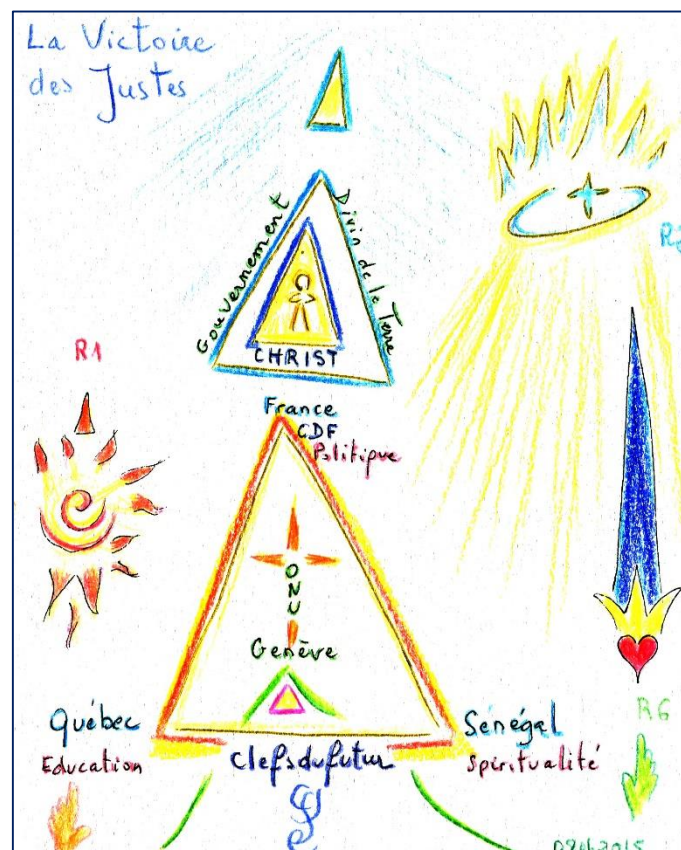 La Victoire
des Justes
Gouvernement
Divin de la Terre
CHRIST
R1
France
CDF
Politique
ONU
Genève
Québec
Education
Clefsdufutur
Sénégal
Spiritualité
R6